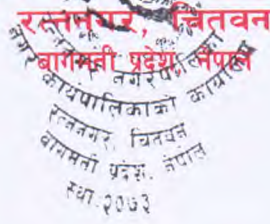 रत्ननगर, चितवन
बागमती प्रदेश, नेपाल
नगर कार्यपालिकाको कार्यालय
रत्ननगर, चितवन
बागमती प्रदेश, नेपाल
स्था. २०७३